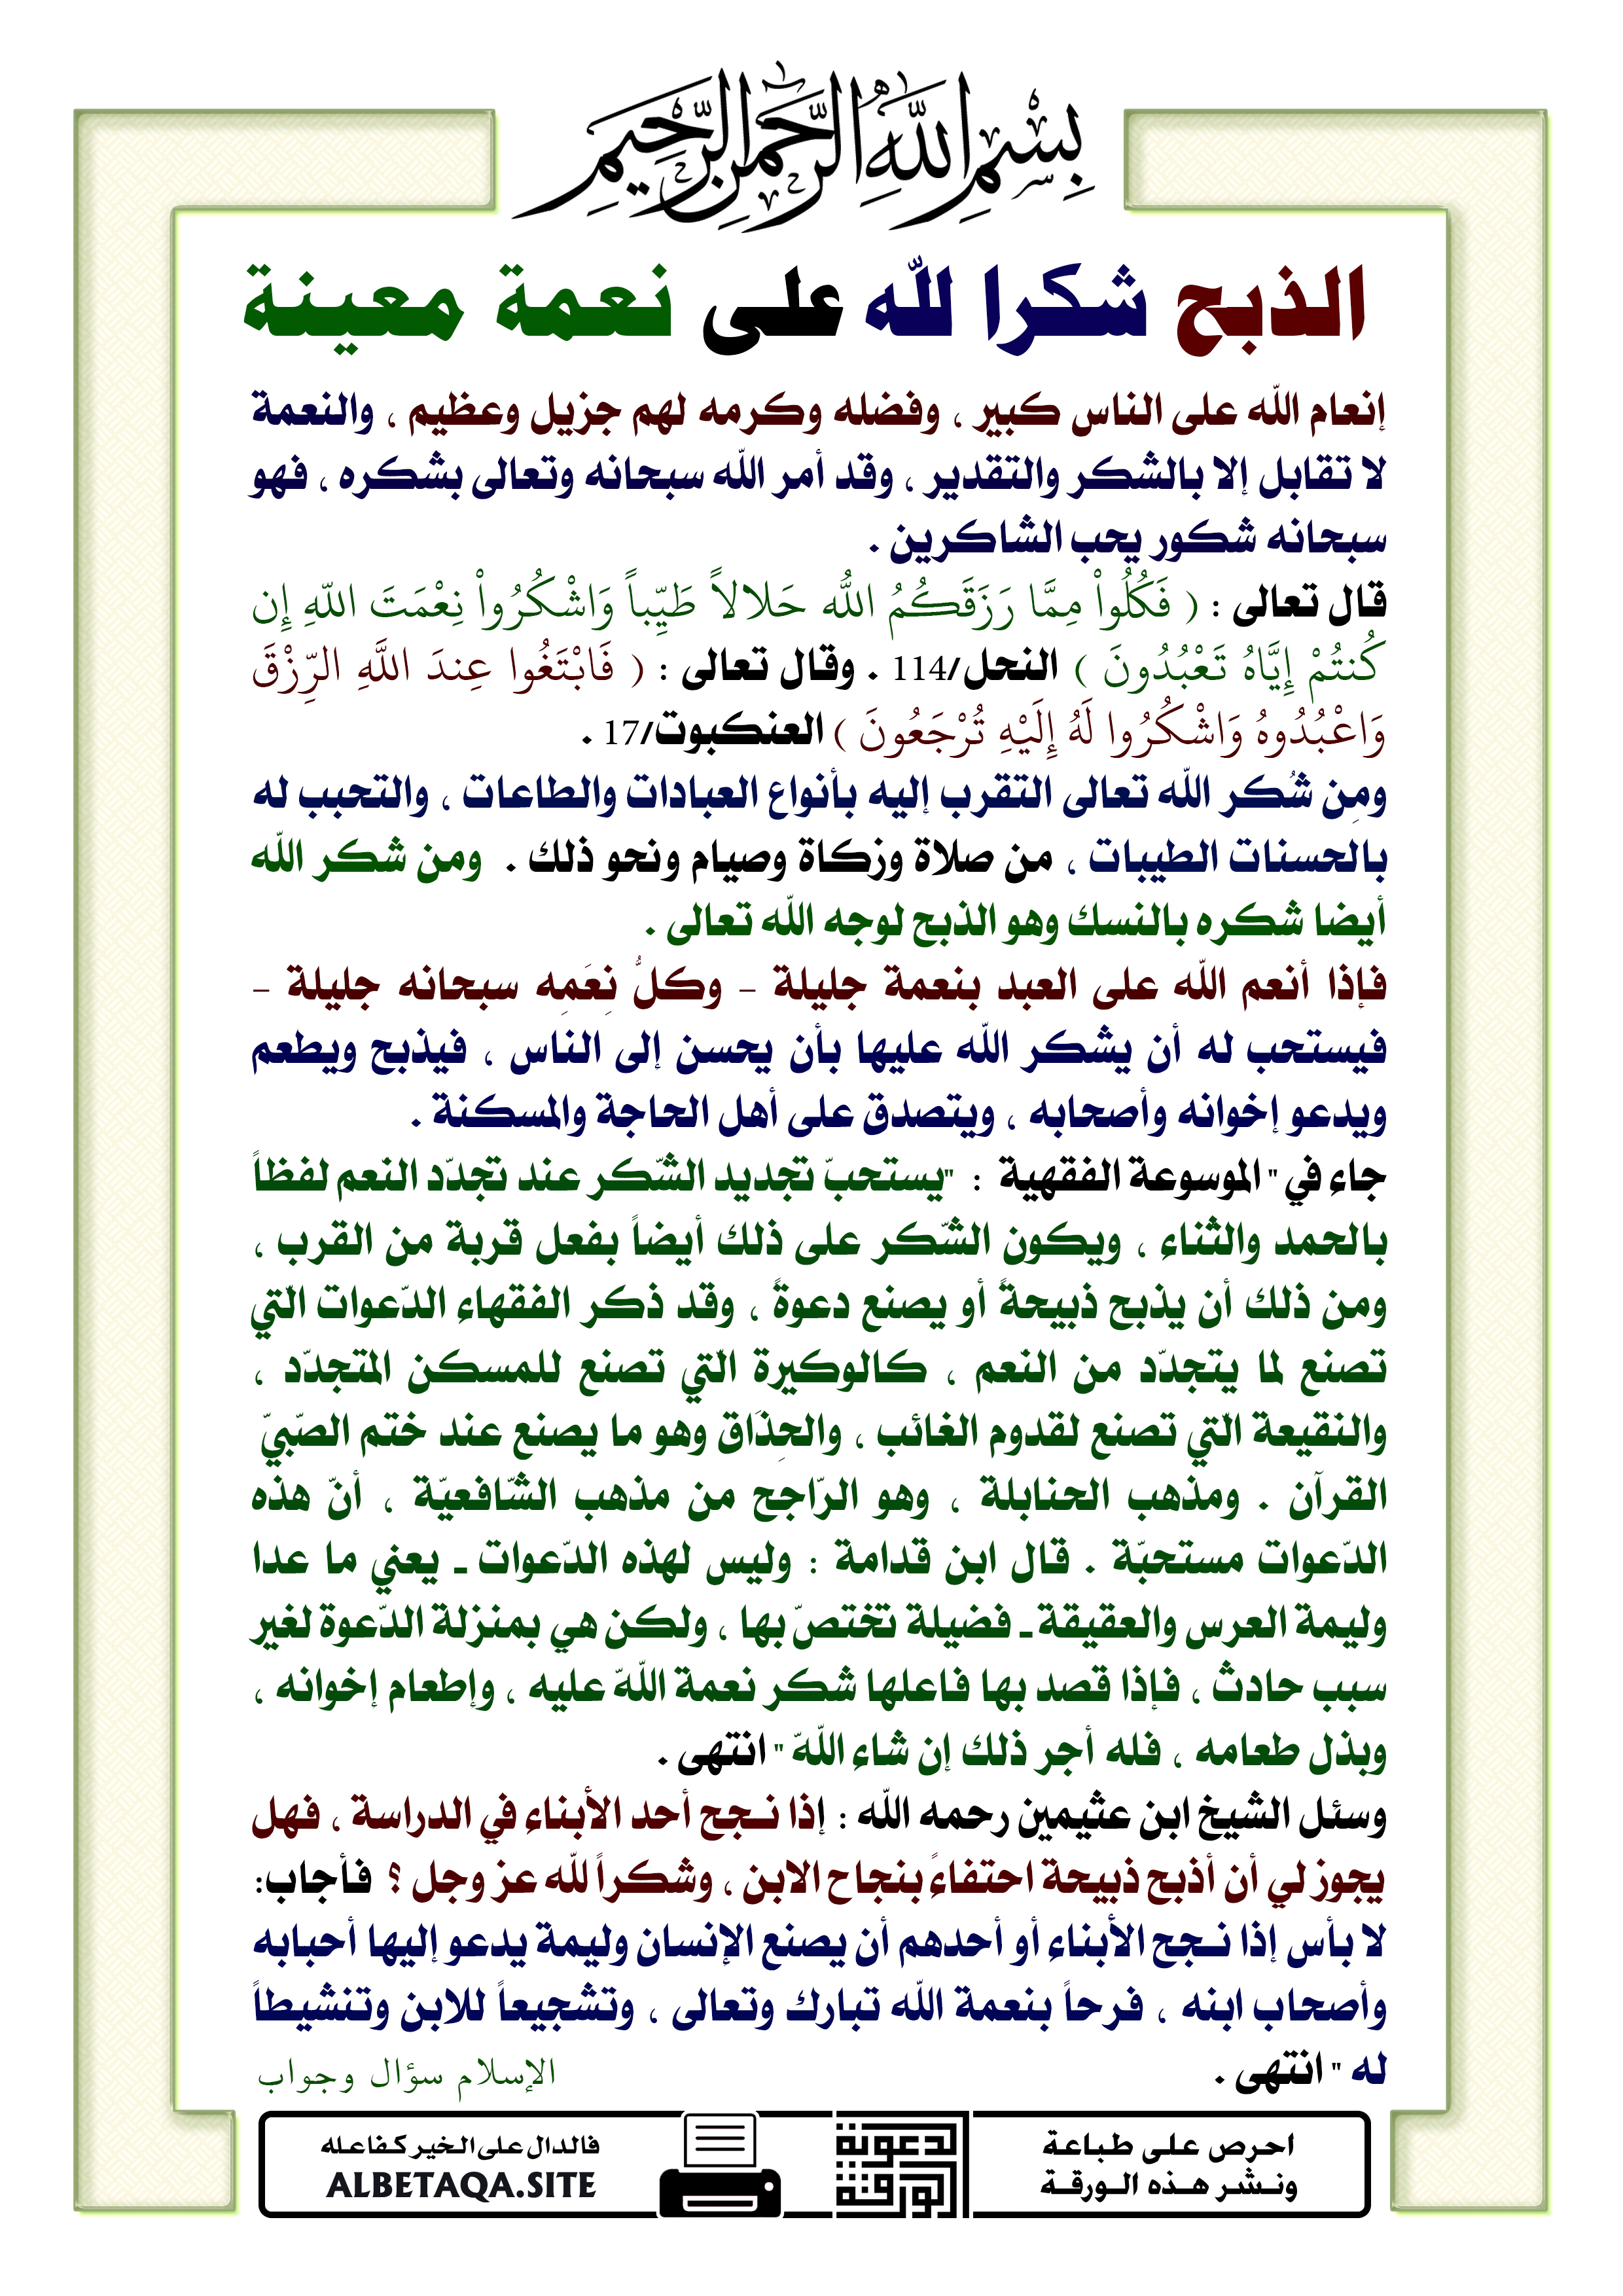 بِسْمِ اللَّهِ الرَّحْمَنِ الرَّحِيمِ
الذبح شكرا لله على نعمة معينة
إنعام الله على الناس كبير ، وفضله وكرمه لهم جزيل وعظيم ، والنعمة
لا تقابل إلا بالشكر والتقدير ، وقد أمر الله سبحانه وتعالى بشكره ، فهو
سبحانه شكور يحب الشاكرين .
قال تعالى : ( فَكُلُواْ مِمَّا رَزَقَكُمُ اللّهُ حَلالاً طَيِّباً وَاشْكُرُواْ نِعْمَتَ اللّهِ إِن
كُنتُمْ إِيَّاهُ تَعْبُدُونَ ) النحل/114 . وقال تعالى : ( فَابْتَغُوا عِندَ اللَّهِ الرِّزْقَ
وَاعْبُدُوهُ وَاشْكُرُوا لَهُ إِلَيْهِ تُرْجَعُونَ ) العنكبوت/17 .
ومِن شُكر الله تعالى التقرب إليه بأنواع العبادات والطاعات ، والتحبب له
بالحسنات الطيبات ، من صلاة وزكاة وصيام ونحو ذلك . ومن شكر الله
أيضا شكره بالنسك وهو الذبح لوجه الله تعالى .
فإذا أنعم الله على العبد بنعمة جليلة – وكلُّ نِعَمِه سبحانه جليلة –
فيستحب له أن يشكر الله عليها بأن يحسن إلى الناس ، فيذبح ويطعم
ويدعو إخوانه وأصحابه ، ويتصدق على أهل الحاجة والمسكنة .
جاء في " الموسوعة الفقهية : "يستحبّ تجديد الشّكر عند تجدّد النّعم لفظاً
بالحمد والثناء ، ويكون الشّكر على ذلك أيضاً بفعل قربة من القرب ،
ومن ذلك أن يذبح ذبيحةً أو يصنع دعوةً ، وقد ذكر الفقهاء الدّعوات الّتي
تصنع لما يتجدّد من النعم ، كالوكيرة الّتي تصنع للمسكن المتجدّد ،
والنقيعة الّتي تصنع لقدوم الغائب ، والحِذَاق وهو ما يصنع عند ختم الصّبيّ
القرآن . ومذهب الحنابلة ، وهو الرّاجح من مذهب الشّافعيّة ، أنّ هذه
الدّعوات مستحبّة . قال ابن قدامة : وليس لهذه الدّعوات ـ يعني ما عدا
وليمة العرس والعقيقة ـ فضيلة تختصّ بها ، ولكن هي بمنزلة الدّعوة لغير
سبب حادث ، فإذا قصد بها فاعلها شكر نعمة اللّه عليه ، وإطعام إخوانه ،
وبذل طعامه ، فله أجر ذلك إن شاء اللّه " انتهى .
وسئل الشيخ ابن عثيمين رحمه الله : إذا نـجح أحد الأبناء في الدراسة ، فهل
يجوز لي أن أذبح ذبيحة احتفاءً بنجاح الابن ، وشكراً لله عز وجل ؟ فأجاب:
لا بأس إذا نـجح الأبناء أو أحدهم أن يصنع الإنسان وليمة يدعو إليها أحبابه
وأصحاب ابنه ، فرحاً بنعمة الله تبارك وتعالى ، وتشجيعاً للابن وتنشيطاً
له " انتهى .
الإسلام سؤال وجواب
احرص على طباعة
ونـشـر هـذه الـورقـة
الورقة
الدعوية
فالدال على الخير كفاعله
ALBETAQA.SITE